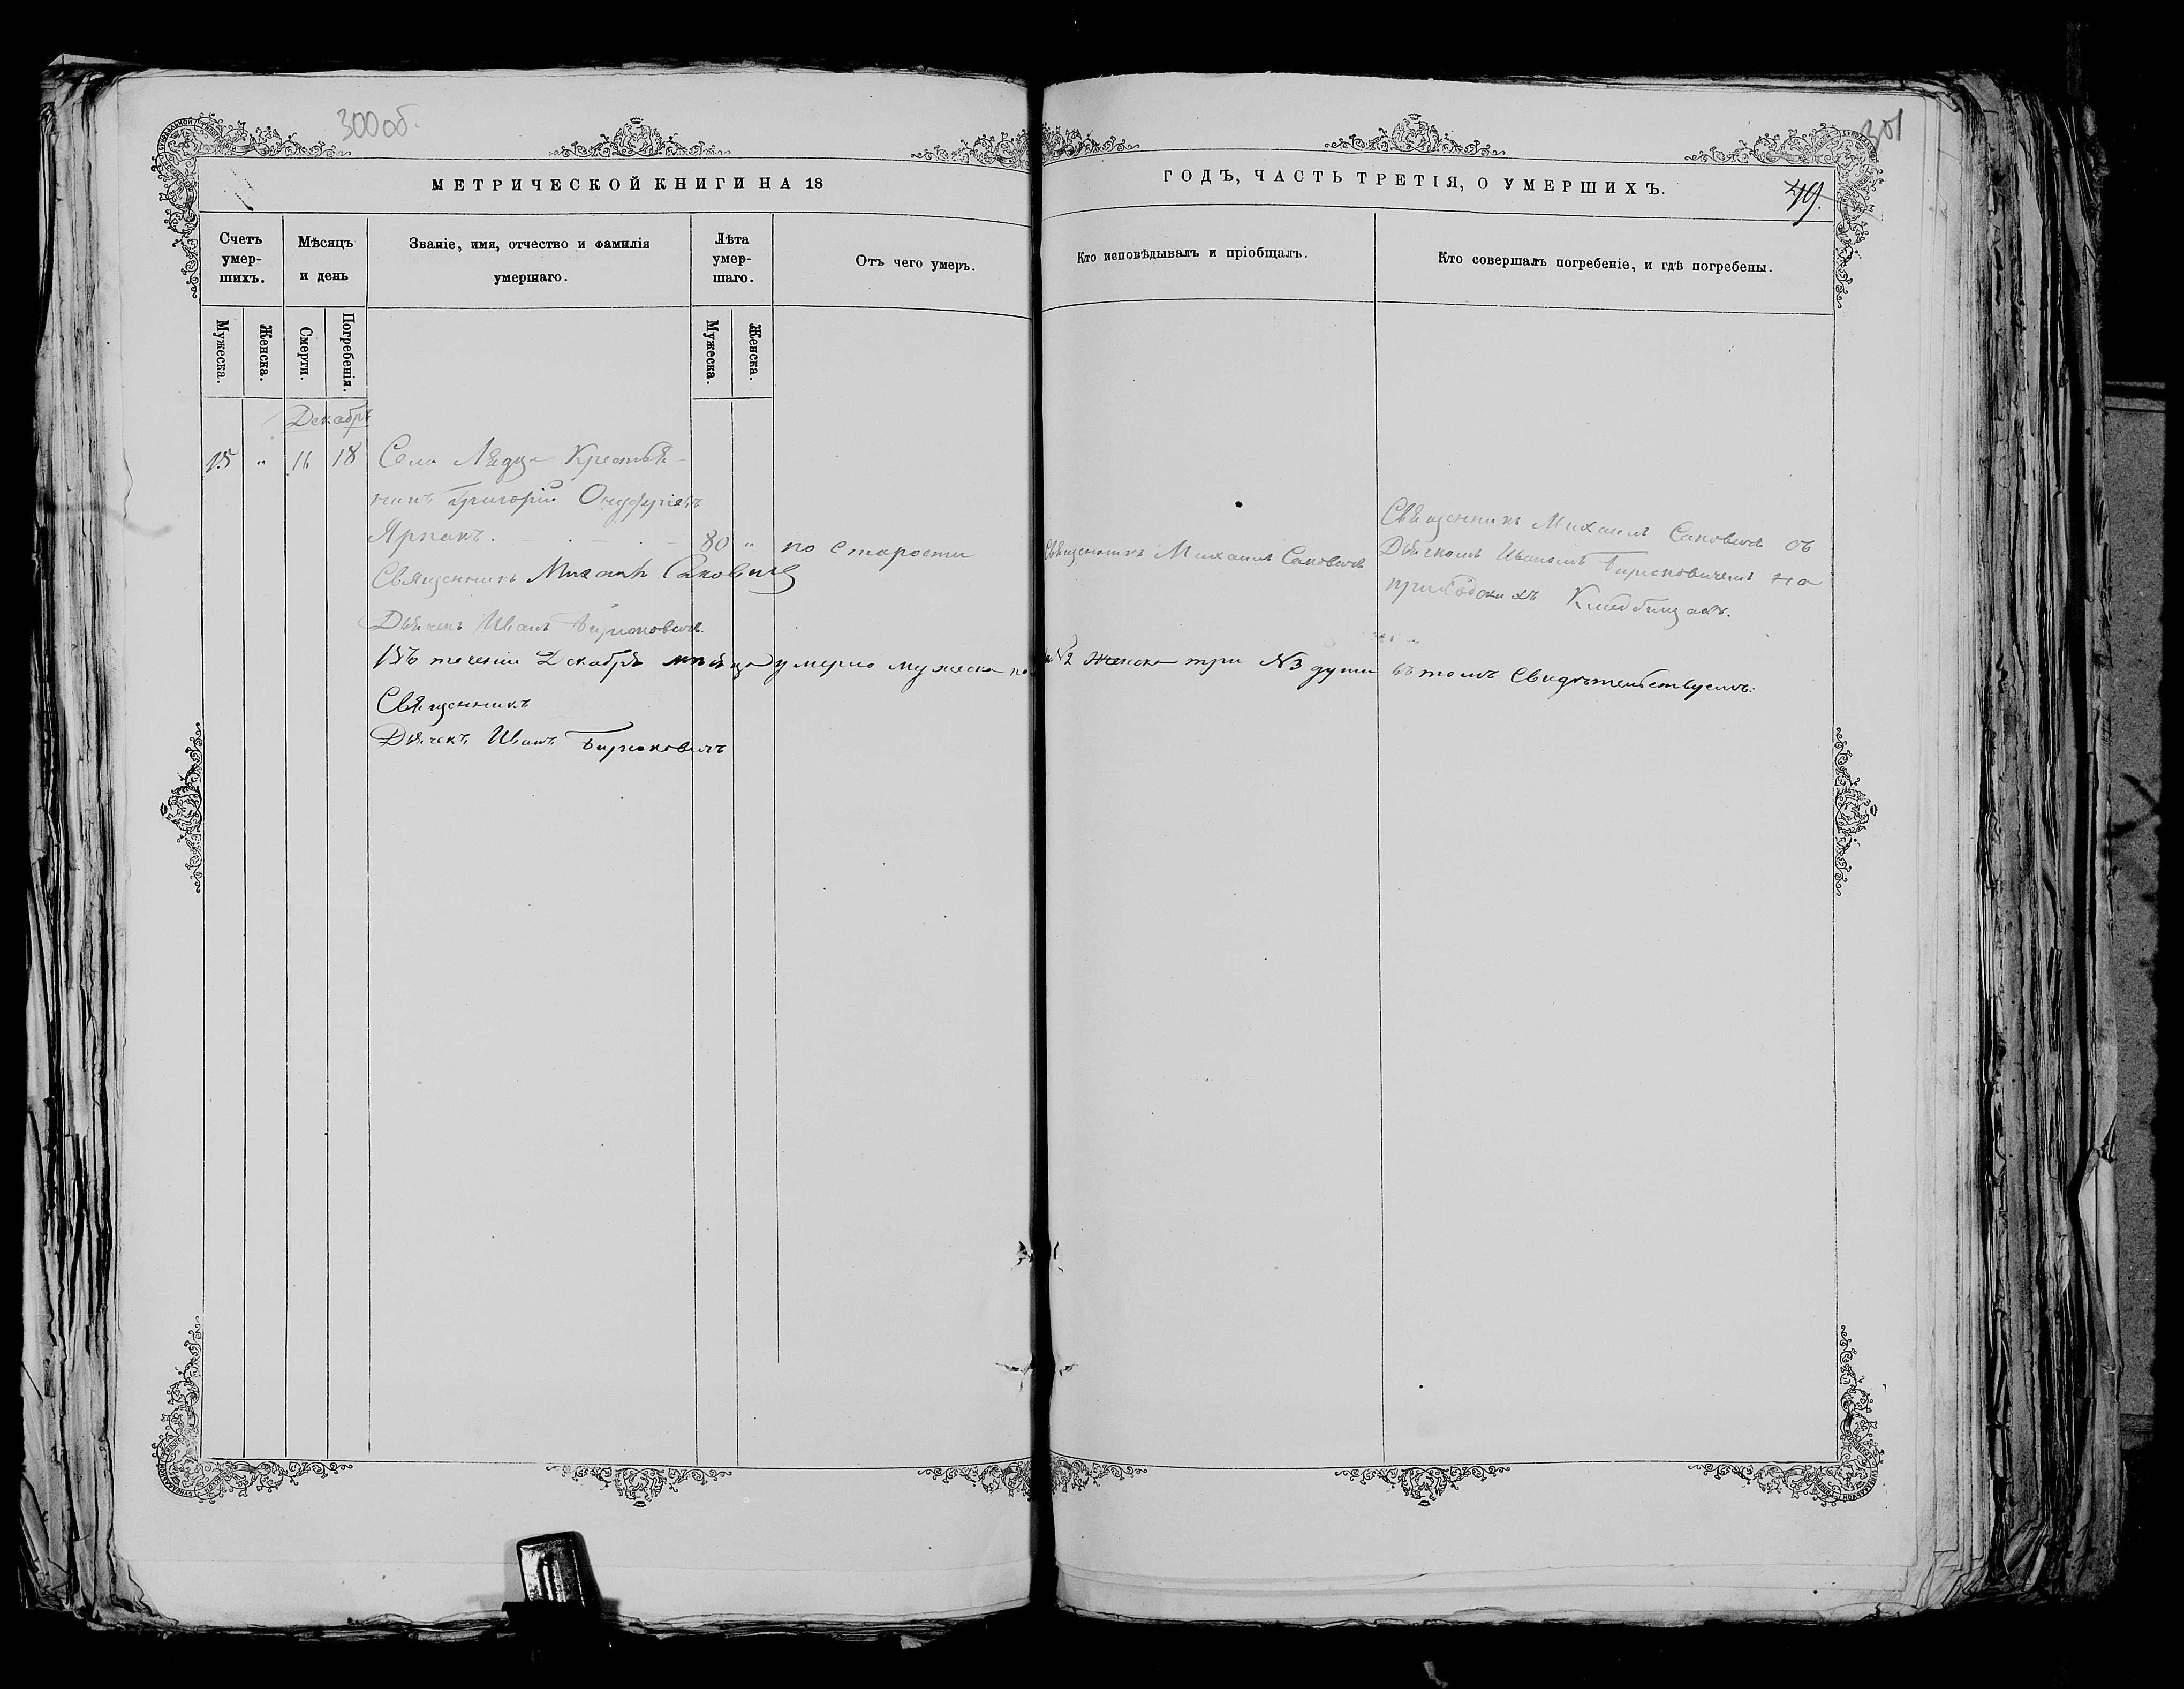 300 об.
301
МЕТРИЧЕСКОЙ КНИГИ НА 18
ГОДЪ, ЧАСТЬ ТРЕТІЯ, О УМЕРШИХЪ.
49.
Счетъ умер-шихъ.
Мѣсяцъ и день
Званіе, имя, отчество и фамилія умершаго.
Лѣта умер-шаго.
Отъ чего умеръ.
Кто исповѣдывалъ и пріобщалъ.
Кто совершалъ погребеніе, и гдѣ погребены.
Мужеска.
Женска.
Смерти.
Погребенія.
Мужеска.
Женска.
Декабрь
15 " 16 18 Села Крестья-
нинъ Григорій Онуфріевъ
80 " по старости
Священникъ Михаилъ Саковичъ
Священникъ Михаилъ Саковичъ
Священникъ Михаилъ Саковичъ съ
Дьячкомъ Иваномъ на
приходскихъ Кладбищахъ.
Дьячекъ Иванъ
Въ теченіи Декабря мѣсяца умерло мужеска по №2 женска три №3 души въ томъ свидѣтельствуемъ:
Священникъ
Дьячекъ Иванъ